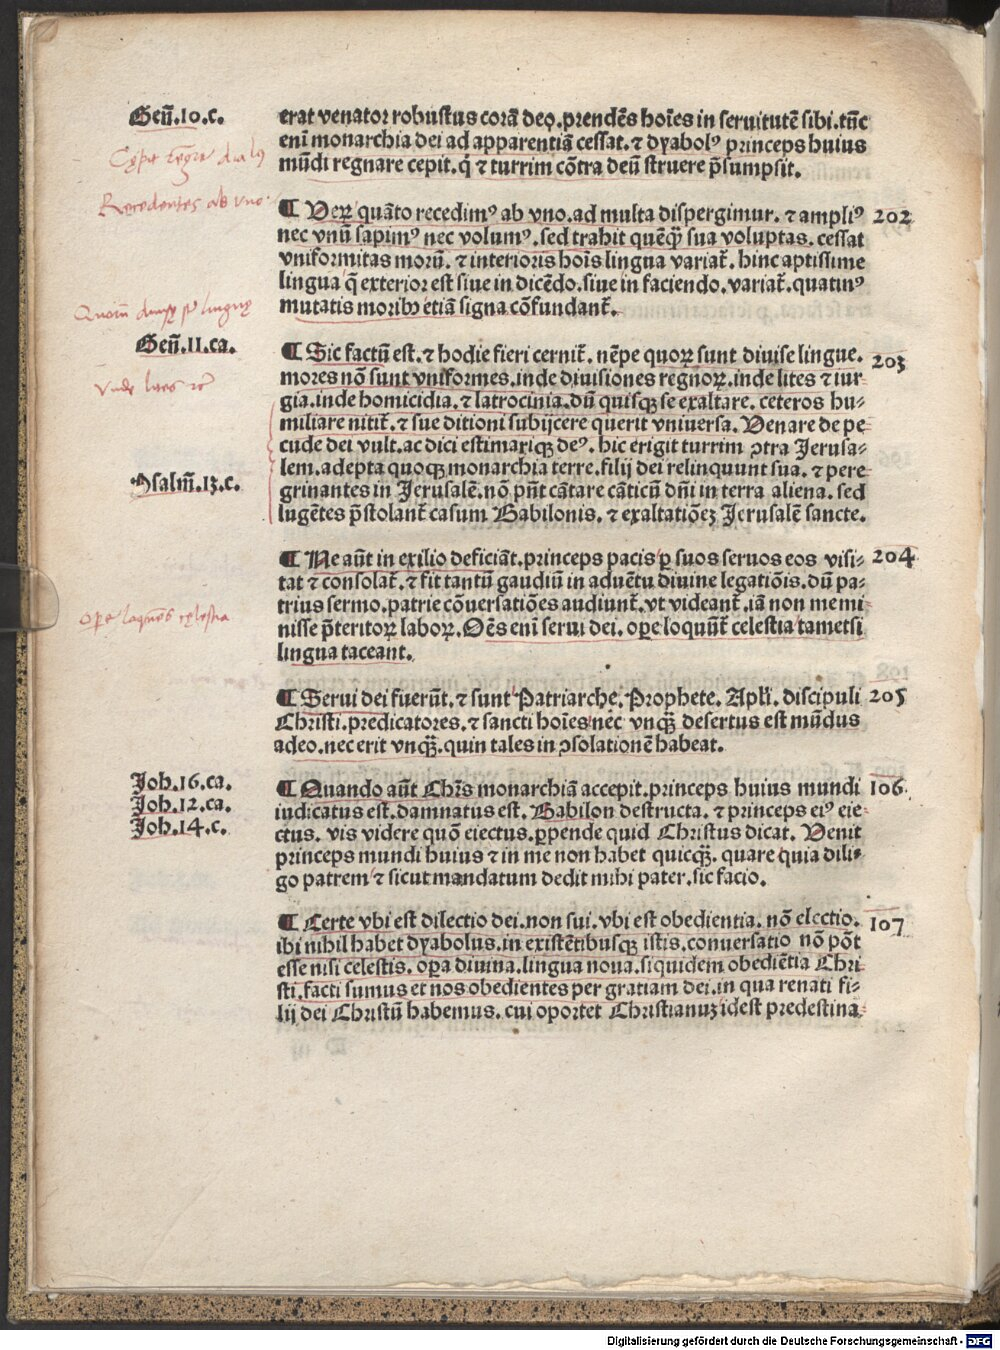 Geñ.10.c.
erat venator robustus corã deo.prendẽs hoĩes in seruitutẽ sibi.tũc
enĩ monarchia dei ad apparentiã cessat.⁊ dyabolꝰ princeps huius
mũdi regnare cepit.q̇ ⁊ turrim cõtra deũ struere p̃sumpsit.
Recedentes ab vno
¶ Veꝝ quãto recedimꝰ ab vno.ad multa dispergimur.⁊ ampliꝰ 202
nec vnũ sapimꝰ nec volumꝰ.sed trahit quẽqꝫ̃ sua voluptas.cessat
vniformitas morũ.⁊ interioris hoĩs lingua variat̃.hinc aptissime
lingua q̃ exterior est siue in dicẽdo.siue in faciendo.variat̃.quatinꝰ
mutatis moribꝫ etiã signa cõfundant̃.
Geñ.11.ca.
¶ Sic factũ est.⁊ hodie fieri cernit̃.nẽpe quoꝝ sunt diuise lingue. 203
mores nõ sunt vniformes.inde diuisiones regnoꝝ.inde lites ⁊ iur⸗
gia.inde homicidia.⁊ latrocinia.dũ quisqꝫ se exaltare.ceteros hu⸗
miliare nitit̃.⁊ sue ditioni subijcere querit vniuersa.Venare de pe⸗
cude dei vult.ac dici estimariqꝫ deꝰ.hic erigit turrim ꝯtra Jerusa⸗
lem.adepta quoqꝫ monarchia terre.filij dei relinquunt sua.⁊ pere⸗
Psalm̃.13.c.
grinantes in Jerusalẽ.nõ pñt cãtare cãticũ dñi in terra aliena.sed
lugẽtes p̃stolant̃ casum Babilonis.⁊ exaltatiõeꝫ Jerusalẽ sancte.
¶ Ne aũt in exilio deficiãt.princeps pacis ꝑ suos seruos eos visi⸗ 204
tat ⁊ consolat̃.⁊ fit tantũ gaudiũ in aduẽtu diuine legatiõis.dũ pa⸗
trius sermo.patrie cõuersatiões audiunt̃.vt videant̃.iã non memi⸗
nisse p̃teritoꝝ laboꝝ.Oẽs enĩ serui dei.oꝑe loquũt̃ celestia tametsi
lingua taceant.
¶ Serui dei fuerũt.⁊ sunt Patriarche.Prophete.Apłi.discipuli 205
Christi.predicatores.⁊ sancti hoĩes nec vnqꝫ̃ desertus est mũdus
adeo.nec erit vnqꝫ̃.quin tales in ꝯsolationẽ habeat.
Joh.16.ca.
Joh.12.ca.
Joh.14.c.
¶ Quando aũt Chr̃s monarchiã accepit.princeps huius mundi 106
iudicatus est.damnatus est.Babilon destructa.⁊ princeps eiꝰ eie⸗
ctus. vis videre quõ eiectus.ꝑpende quid Christus dicat. Venit
princeps mundi huius ⁊ in me non habet quicqꝫ̃.quare quia dili⸗
go patrem ⁊ sicut mandatum dedit mihi pater.sic facio.
¶ Certe vbi est dilectio dei.non sui.vbi est obedientia.nõ electio. 107
ibi nihil habet dyabolus.in existẽtibusqꝫ istis.conuersatio nõ põt
esse nisi celestis.oꝑa diuina.lingua noua.siquidem obediẽtia Chri⸗
sti.facti sumus et nos obedientes per gratiam dei.in qua renati fi⸗
lij dei Christũ habemus.cui oportet Christianuꝫ idest predestina⸗
Digitalisierung gefördert durch die Deutsche Forschungsgemeinschaft - DFG